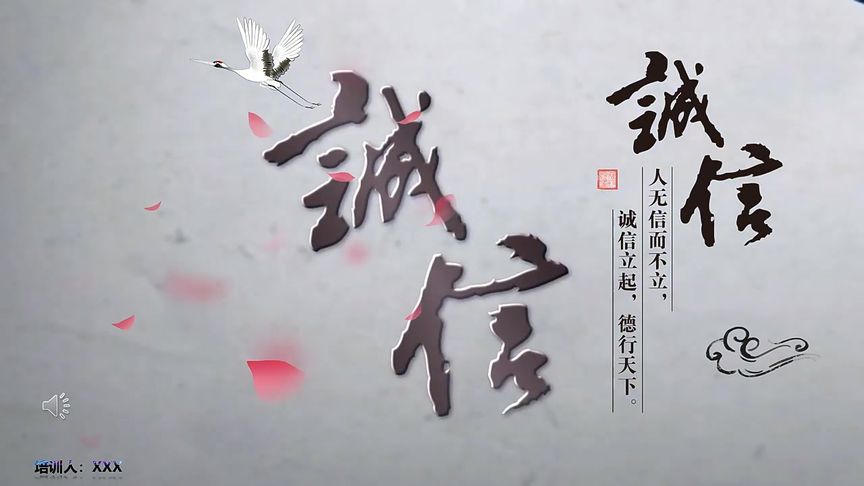 誠信
誠信
人无信而不立，
诚信立起，德行天下。
培训人：XXX